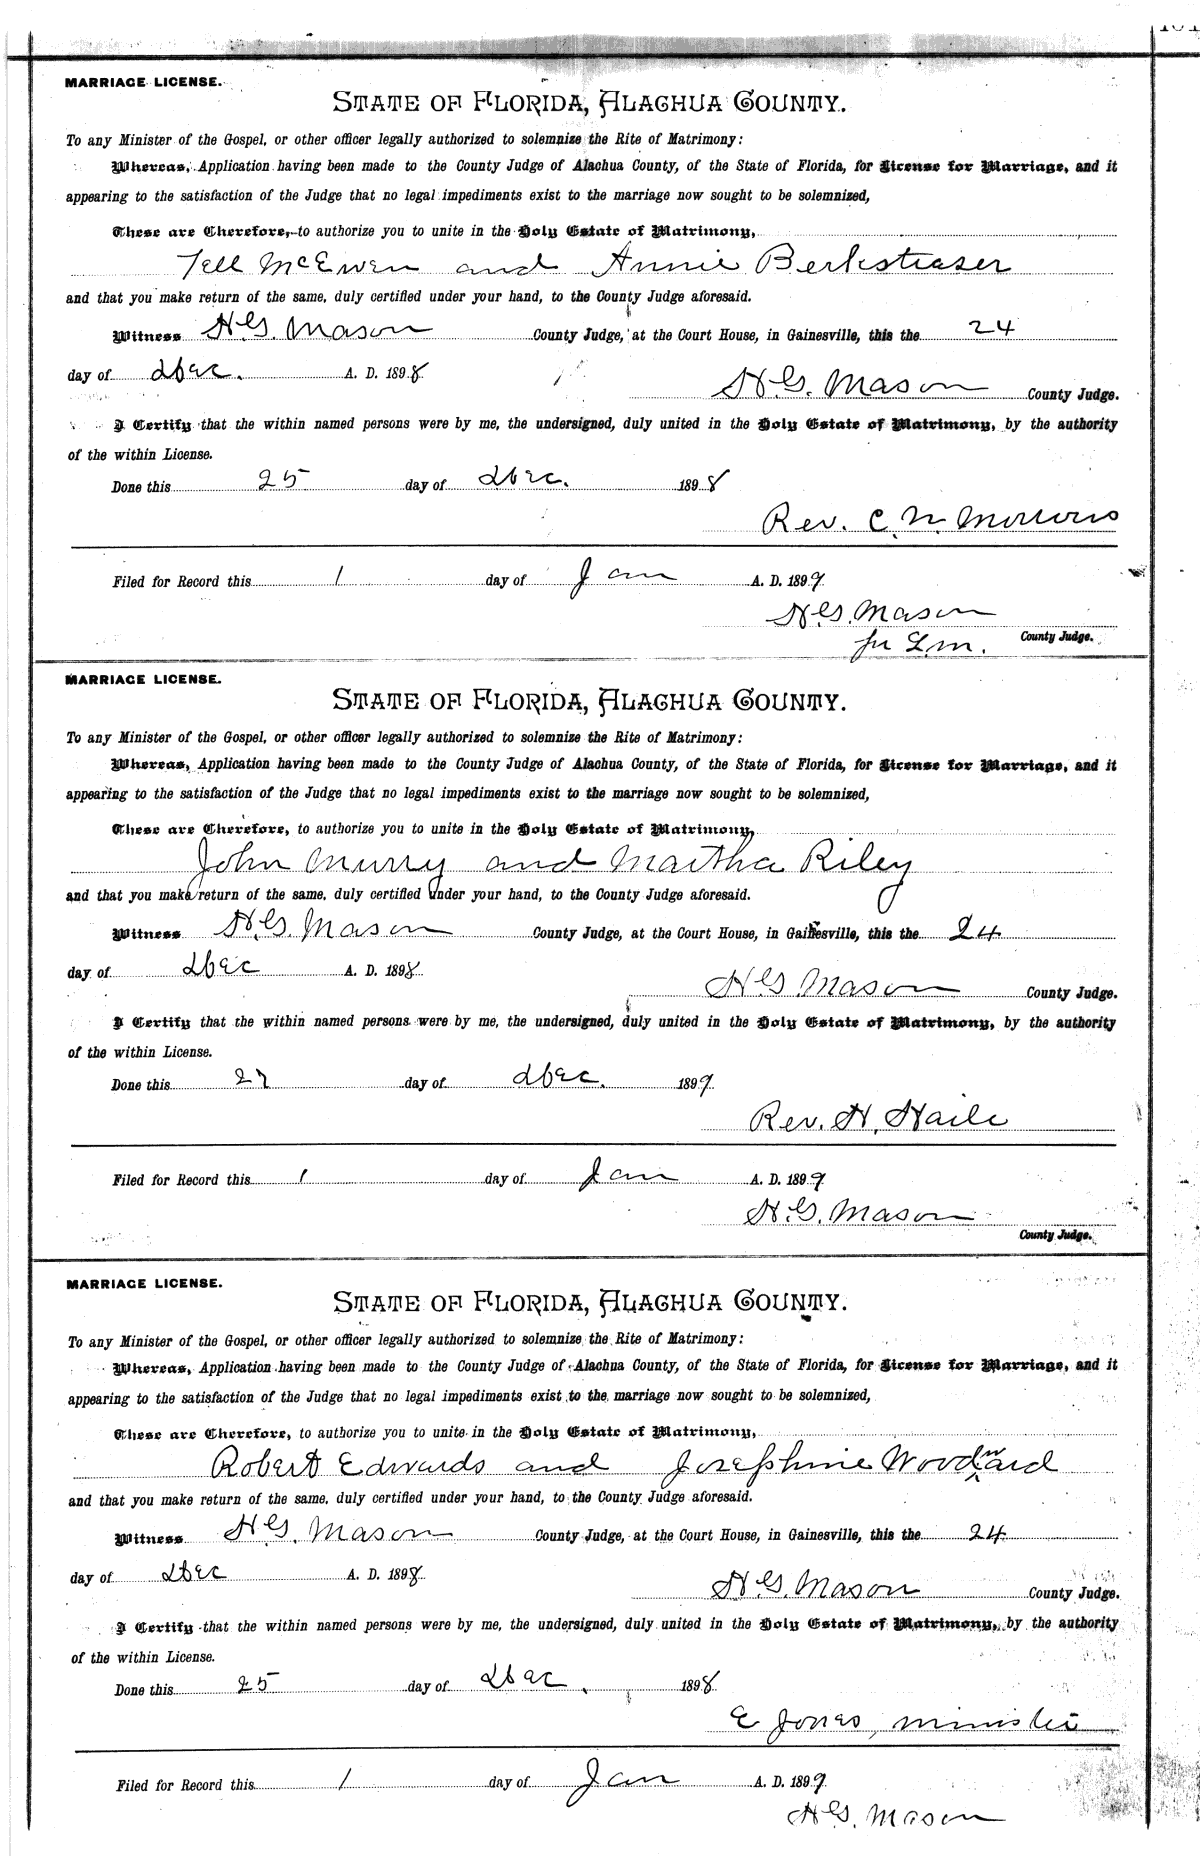 MARRIAGE LICENSE.
STATE OF FLORIDA, ALACHUA COUNTY.
To any Minister of the Gospel, or other officer legally authorized to solemnize the Rite of Matrimony:
Whereas, Application having been made to the County Judge of Alachua County, of the State of Florida, for License for Marriage, and it
appearing to the satisfaction of the Judge that no legal impediments exist to the marriage now sought to be solemnized,
These are Therefore, to authorize you to unite in the Holy Estate of Matrimony,
Tell McEwen and Annie Berkstraser
and that you make return of the same, duly certified under your hand, to the County Judge aforesaid.
Witness H.G. Mason County Judge, at the Court House, in Gainesville, this the 24
day of Dec. A. D. 1898
H.G. Mason County Judge.
I Certify that the within named persons were by me, the undersigned, duly united in the Holy Estate of Matrimony, by the authority
of the within License.
Done this 25 day of Dec. 1898
Rev. C. N.
Filed for Record this 1 day of Jan A. D. 1899
H.G. Mason
County Judge.
L.M.
MARRIAGE LICENSE.
STATE OF FLORIDA, ALACHUA COUNTY.
To any Minister of the Gospel, or other officer legally authorized to solemnize the Rite of Matrimony:
Whereas, Application having been made to the County Judge of Alachua County, of the State of Florida, for License for Marriage, and it
appearing to the satisfaction of the Judge that no legal impediments exist to the marriage now sought to be solemnized,
These are Therefore, to authorize you to unite in the Holy Estate of Matrimony,
John Murry and Martha Riley
and that you make return of the same, duly certified under your hand, to the County Judge aforesaid.
Witness H.G. Mason County Judge, at the Court House, in Gainesville, this the 24
day of Dec A. D. 1898
H.G. Mason County Judge.
I Certify that the within named persons were by me, the undersigned, duly united in the Holy Estate of Matrimony, by the authority
of the within License.
Done this 27 day of Dec. 1899
Rev. H. Haile
Filed for Record this 1 day of Jan A. D. 1899
H.G. Mason
County Judge.
MARRIAGE LICENSE.
STATE OF FLORIDA, ALACHUA COUNTY.
To any Minister of the Gospel, or other officer legally authorized to solemnize the Rite of Matrimony:
Whereas, Application having been made to the County Judge of Alachua County, of the State of Florida, for License for Marriage, and it
appearing to the satisfaction of the Judge that no legal impediments exist to the marriage now sought to be solemnized,
These are Therefore, to authorize you to unite in the Holy Estate of Matrimony,
Robert Edwards and Josephine Woodward
and that you make return of the same, duly certified under your hand, to the County Judge aforesaid.
Witness H.G. Mason County Judge, at the Court House, in Gainesville, this the 24
day of Dec A. D. 1898
H.G. Mason County Judge.
I Certify that the within named persons were by me, the undersigned, duly united in the Holy Estate of Matrimony, by the authority
of the within License.
Done this 25 day of Dec. 1898
E Jones, minister
Filed for Record this 1 day of Jan A. D. 1899
H.G. Mason